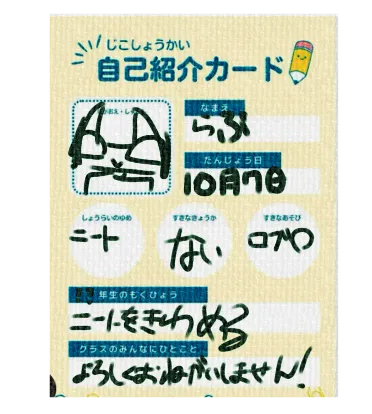 じこしょうかい
自己紹介カード
なまえ
らぶ
たんじょう日
10月7日
しょうらいのゆめ
ニート
すきなきょうか
ない
すきなあそび
年生のもくひょう
ニートをきわめる
クラスのみんなにひとこと
よろしくおねがいしません!